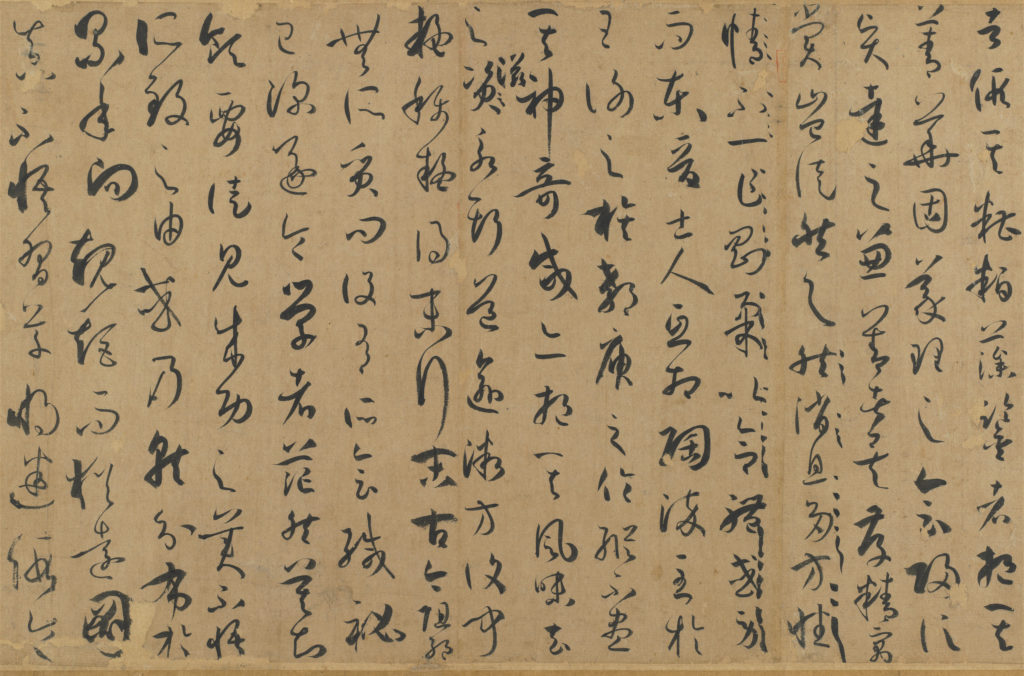 者假其糟粕藻鑒者挹其
菁華固義理之會歸信
賢達之兼善者矣存精寓
賞豈徒然與然消息多方性
情不一乍剛柔以合體忽勞
而東晉士人互相陶淬至於
王謝之族郗庾之倫縱不盡
其神奇咸亦挹其風味去
之滋永斯道愈微方復聞
疑稱疑得末行末古今阻絕
無所質問設有所會緘秘
已深遂令學者茫然莫知
領要徒見成功之美不悟
所致之由或乃就分布於
累年向規矩而猶遠圖
真不悟習草將迷假令